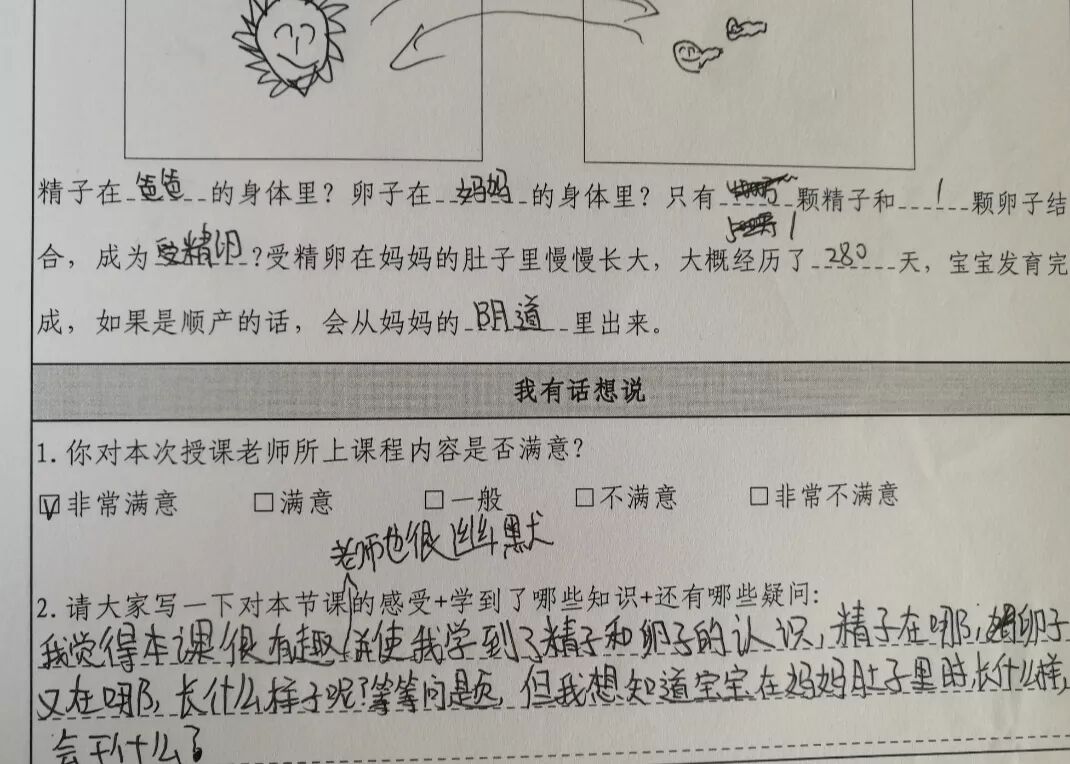 精子在爸爸的身体里？卵子在妈妈的身体里？只有1颗精子和1颗卵子结
合，成为受精卵？受精卵在妈妈的肚子里慢慢长大，大概经历了280天，宝宝发育完
成，如果是顺产的话，会从妈妈的阴道里出来。
我有话想说
1. 你对本次授课老师所上课程内容是否满意？
☑非常满意 □满意 □一般 □不满意 □非常不满意
老师也很幽默
2. 请大家写一下对本节课的感受+学到了哪些知识+还有哪些疑问：
我觉得本课很有趣，并使我学到了精子和卵子的认识，精子在哪，卵子
又在哪，长什么样子呢？等等问题，但我想知道宝宝在妈妈肚子里时，长什么样，
会干什么？